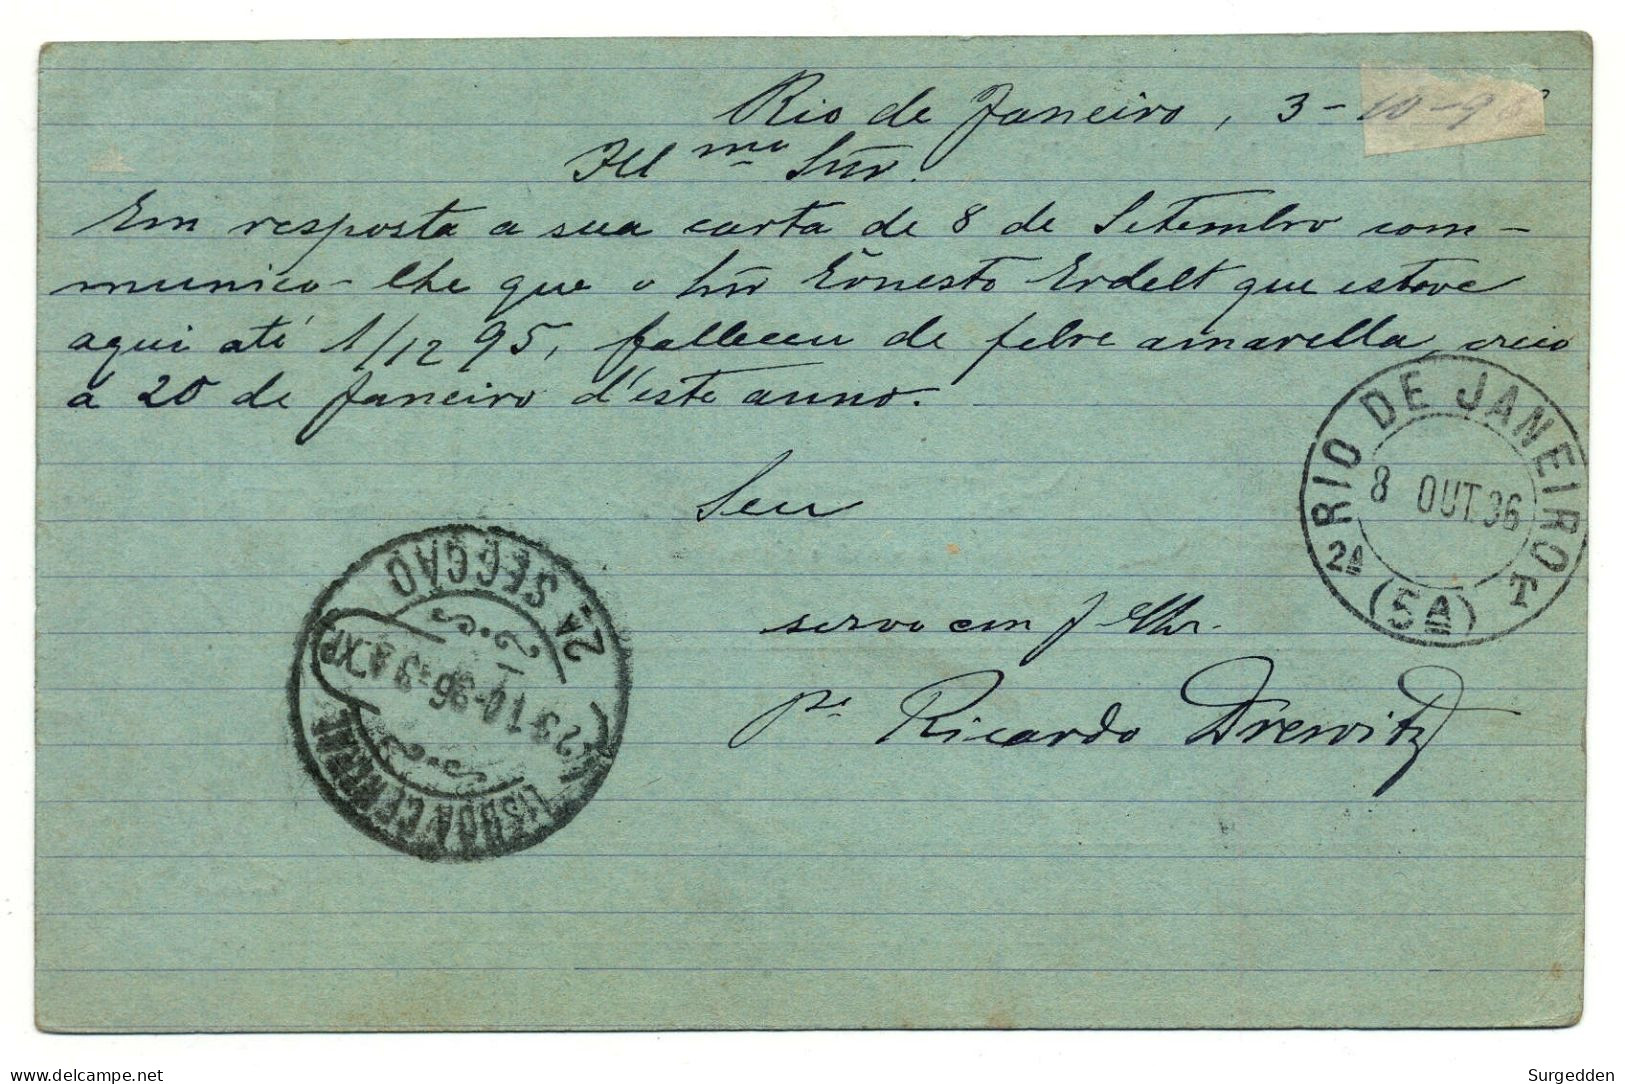 Rio de Janeiro, 3-10-96
Ill mo Snr.
Em resposta a sua carta de 8 de Setembro com-
munico-lhe que o Snr Ernesto Erdelt que esteve
aqui até 1/12 95, falleceu de febre amarella, creio
a 20 de Janeiro d'este anno.
Seu
RIO DE JANEIRO
8 OUT. 96
2A (5A) T
2A SECÇÃO
23-10-96
LISBOA CENTRAL
servo
pr Ricardo Drewitz
www.delcampe.net
Surgedden